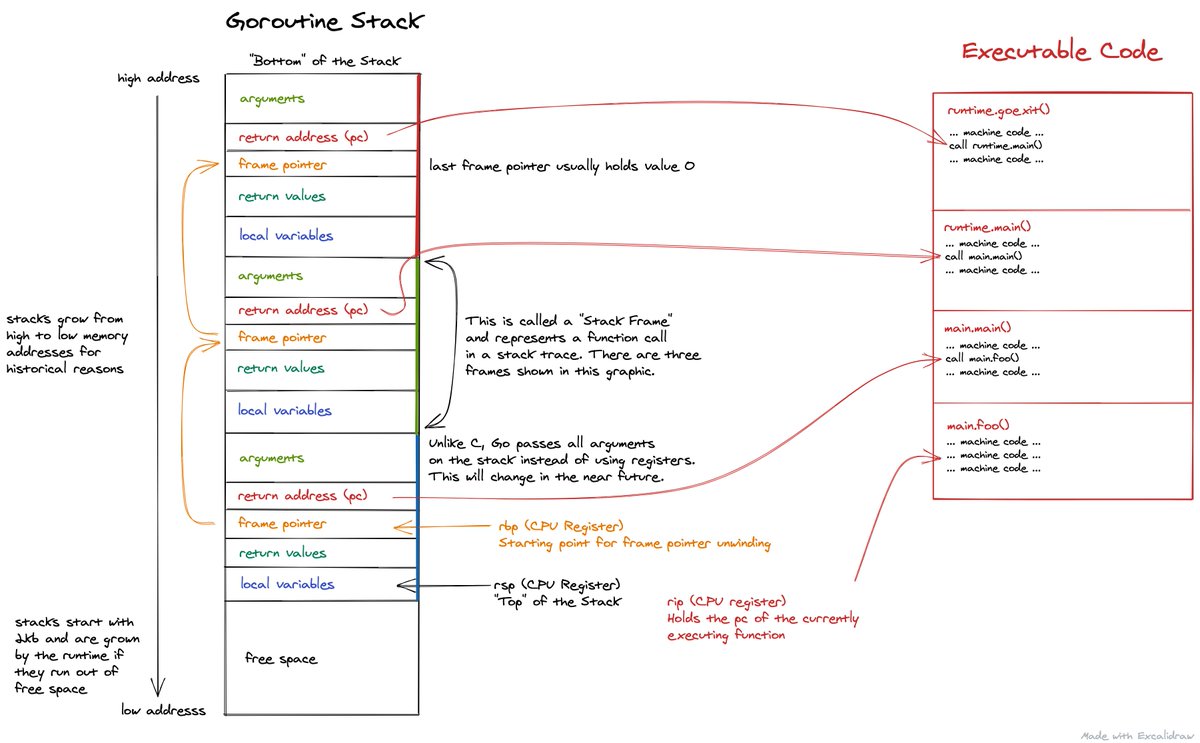 Goroutine Stack
"Bottom" of the Stack
high address
arguments
return address (pc)
frame pointer
last frame pointer usually holds value 0
return values
local variables
arguments
return address (pc)
frame pointer
return values
local variables
arguments
return address (pc)
frame pointer
return values
local variables
free space
stacks grow from
high to low memory
addresses for
historical reasons
This is called a "Stack Frame"
and represents a function call
in a stack trace. There are three
frames shown in this graphic.
Unlike C, Go passes all arguments
on the stack instead of using registers.
This will change in the near future.
rbp (CPU Register)
Starting point for frame pointer unwinding
rsp (CPU Register)
"Top" of the Stack
stack's start with
2kb and are grown
by the runtime if
they run out of
free space
low addresss
Executable Code
runtime.goexit()
... machine code ...
call runtime.main()
... machine code ...
runtime.main()
... machine code ...
call main.main()
... machine code ...
main.main()
... machine code ...
call main.foo()
... machine code ...
main.foo()
... machine code ...
... machine code ...
... machine code ...
rip (CPU register)
Holds the pc of the currently
executing function
Made with Excalidraw